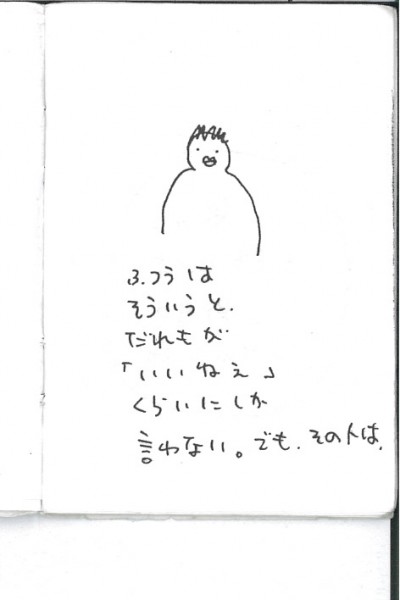 ふつうは
そういうと、
だれもが
「いいねぇ」
くらいにしか
言わない。でも、その人は、